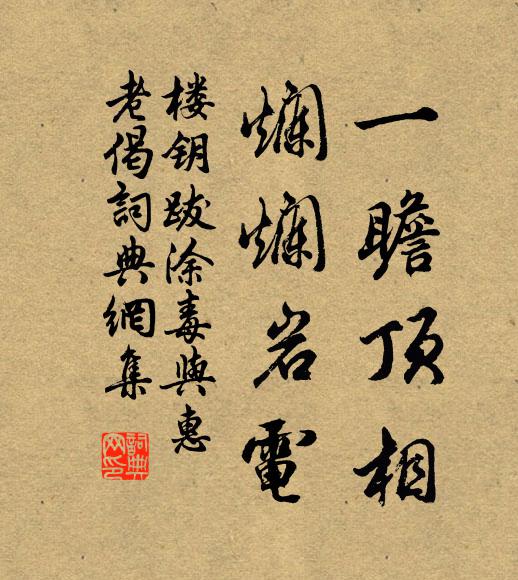 一瞻顶相
爛爛岩電
楼钥跋涂毒與惠
老偈詞典網集
詞典网印